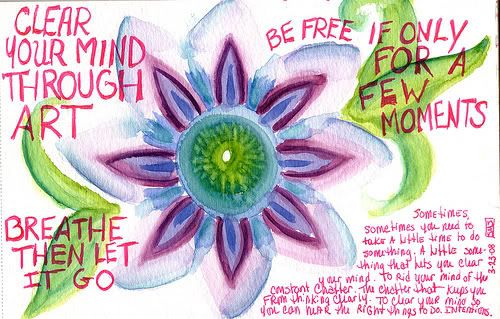 CLEAR
YOUR MIND
THROUGH
ART
BE FREE IF ONLY
FOR A
FEW
MOMENTS
BREATHE
THEN LET
IT GO
Sometimes,
Sometimes you need to
take A little time to do
something. A little some-
thing that lets you clear
your mind. To Rid your mind of the
constant chatter. The chatter that keeps you
FROM thinking clearly. To clear your mind so
you can hear the Right things to do. Intentions.
3-23-08